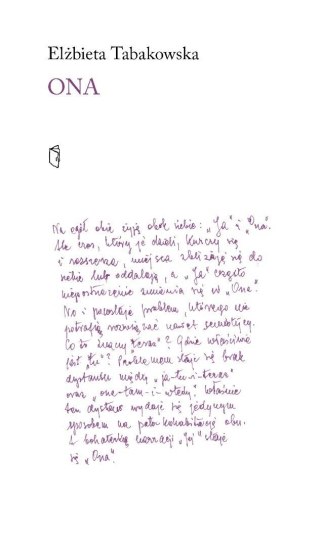 Elżbieta Tabakowska
ONA
Na ogół obie żyją obok siebie: „Ja” i „Ona”.
Ale czas, który je dzieli, kurczy się
i rozszerza, miejsca zbliżają się do
siebie lub oddalają, a „Ja” często
niepostrzeżenie zmienia się w „Ona”.
No i pozostaje problem, którego nie
potrafią rozwiązać nawet semiotycy.
Co to znaczy „teraz”? Gdzie właściwie
jest „tu”? Problemem staje się brak
dystansu między „ja-tu-i-teraz”
oraz „ona-tam-i-wtedy”. Właśnie
ten dystans wydaje się jedynym
sposobem na kohabitację obu.
I bohaterką narracji „jej” staje
się „Ona”.